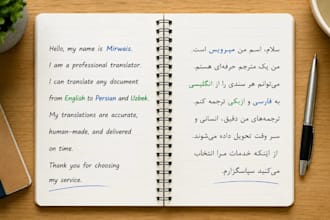 Hello, my name is Mirwais.
I am a professional translator.
I can translate any document
from English to Persian and Uzbek.
My translations are accurate,
human-made, and delivered
on time.
Thank you for choosing
my service.
سلام، اسم من میرویس است.
من یک مترجم حرفه‌ای هستم.
می‌توانم هر سندی را از انگلیسی
به فارسی و ازبکی ترجمه کنم.
ترجمه‌های من دقیق، انسانی و
سر وقت تحویل داده می‌شوند.
از اینکه خدمات مرا انتخاب
می‌کنید سپاسگزارم.